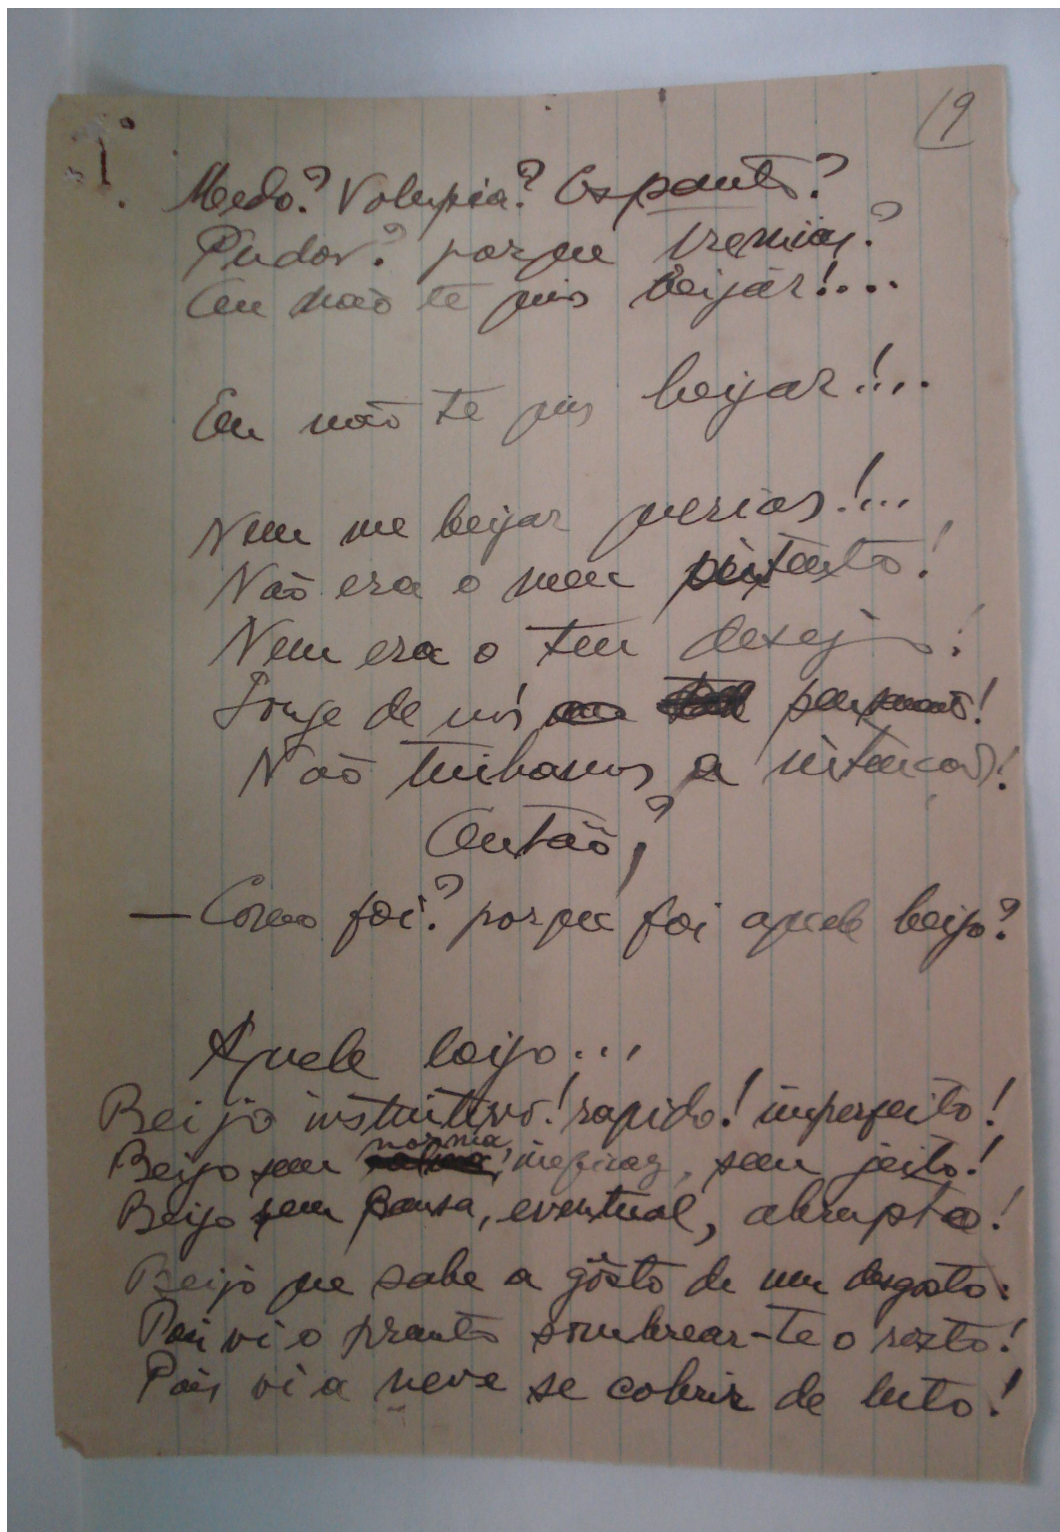 19
Medo? Volupia? Espanto?
Pudor? porque tremias?
Eu não te quis beijar!....
Eu não te quis beijar!...
Nem me beijar querias!...
Não era o meu intento!
Nem era o teu desejo!
Longe de nós pensamento!
Não tinhamos a intenção!
Então?
— Como foi? porque foi aquele beijo?
Aquele beijo...
Beijo instintivo! rapido! imperfeito!
Beijo sem norma, ineficaz, sem jeito!
Beijo sem pausa, eventual, abrupto!
Beijo que sabe a gôsto de um desgosto.
Pois vi o pranto sombrear-te o rosto!
Pois vi a neve se cobrir de luto!